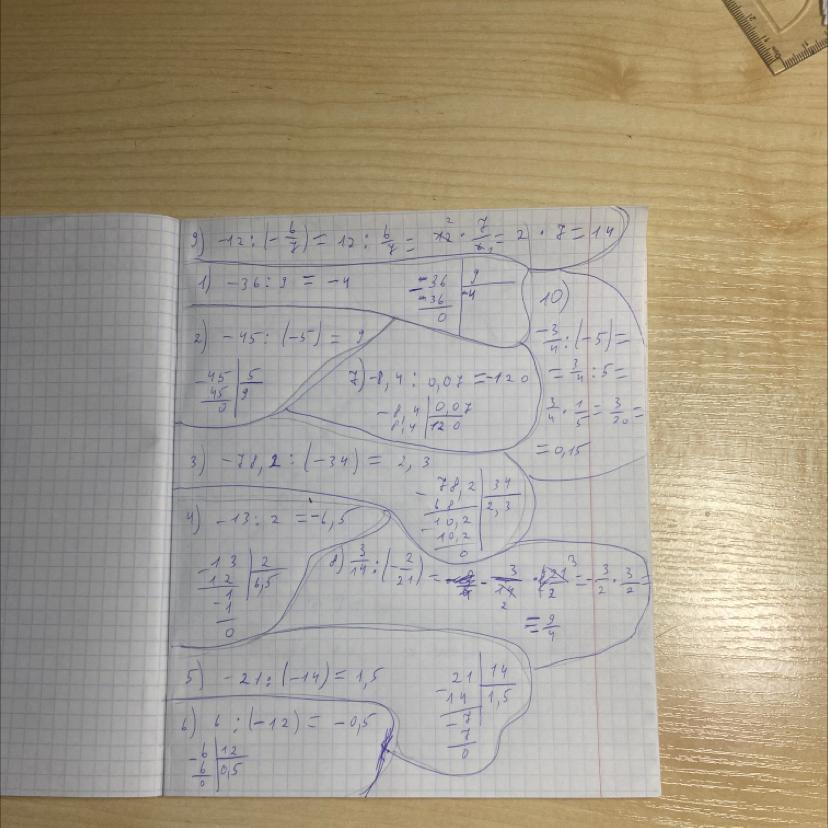 9) -12 : (- 6/7) = 12 : 6/7 = 12 2 · 7/6 1 = 2 · 7 = 14
1) -36 : 9 = -4
-36 | 9
-36 | -4
0
10)
-3/4 : (-5) =
= 3/4 : 5 =
3/4 · 1/5 = 3/20 =
= 0,15
2) -45 : (-5) = 9
-45 | 5
45 | 9
0
7) -8,4 : 0,07 = -120
-8,4 | 0,07
8,4 | 120
3) -78,2 : (-34) = 2,3
- 78,2 | 34
68 | 2,3
-10,2
10,2
0
4) -13 : 2 = -6,5
-13 | 2
12 | 6,5
-1
-1
0
8) 3/14 : (- 2/21) = - 3/14 2 · 21 3/2 = - 3/2 · 3/2 =
= 9/4
5) -21 : (-14) = 1,5
21 | 14
-14 | 1,5
-7
7
0
6) 6 : (-12) = -0,5
-6 | 12
6 | 0,5
0